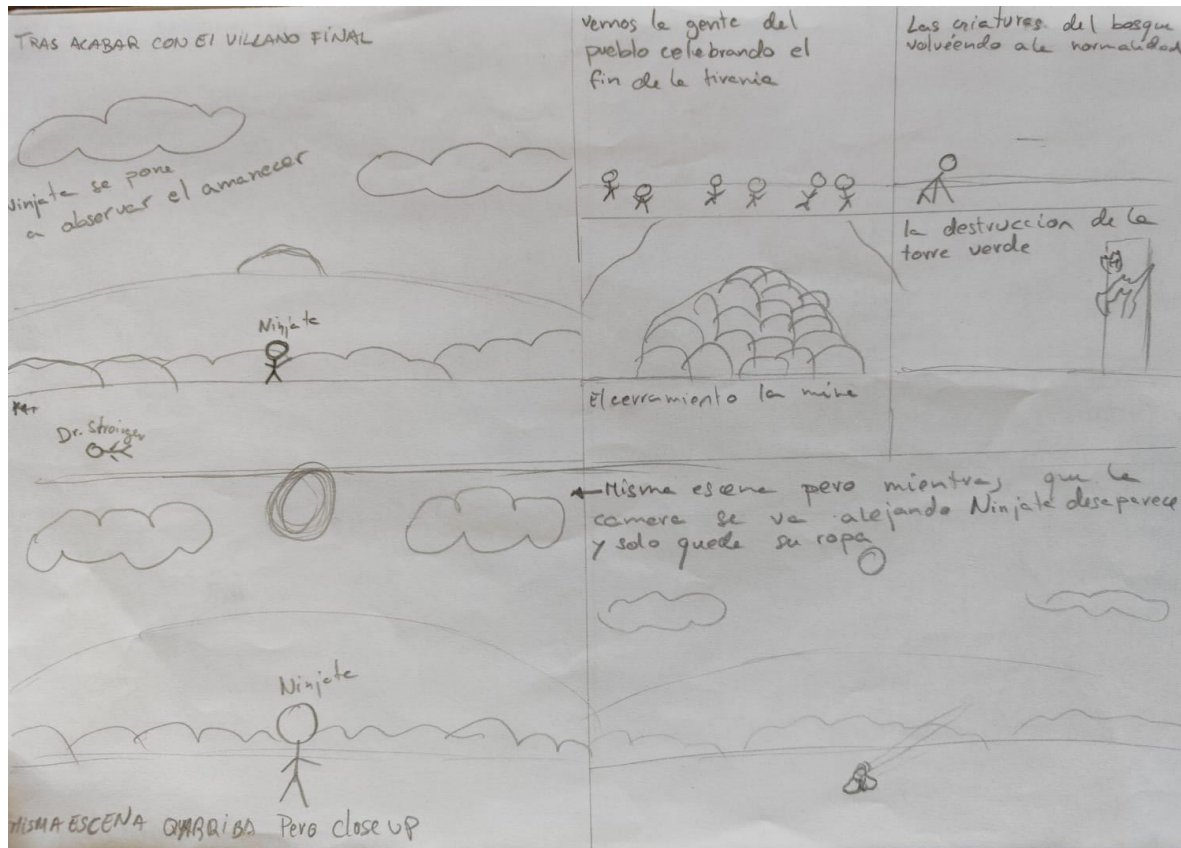 TRAS ACABAR CON EI VILLANO FINAL
Ninjate se pone
a observar el amanecer
Ninjate
vemos la gente del
pueblo celebrando el
fin de la tirania
Las criaturas del bosque
volviendo a la normalidad
la destruccion de la
torre verde
El cerramiento la mina
Dr. Strainger
Ninjate
MISMA ESCENA Q ARRIBA Pero close up
Misma escena pero mientras que la
camera se va alejando Ninjate desaparece
y solo quede su ropa